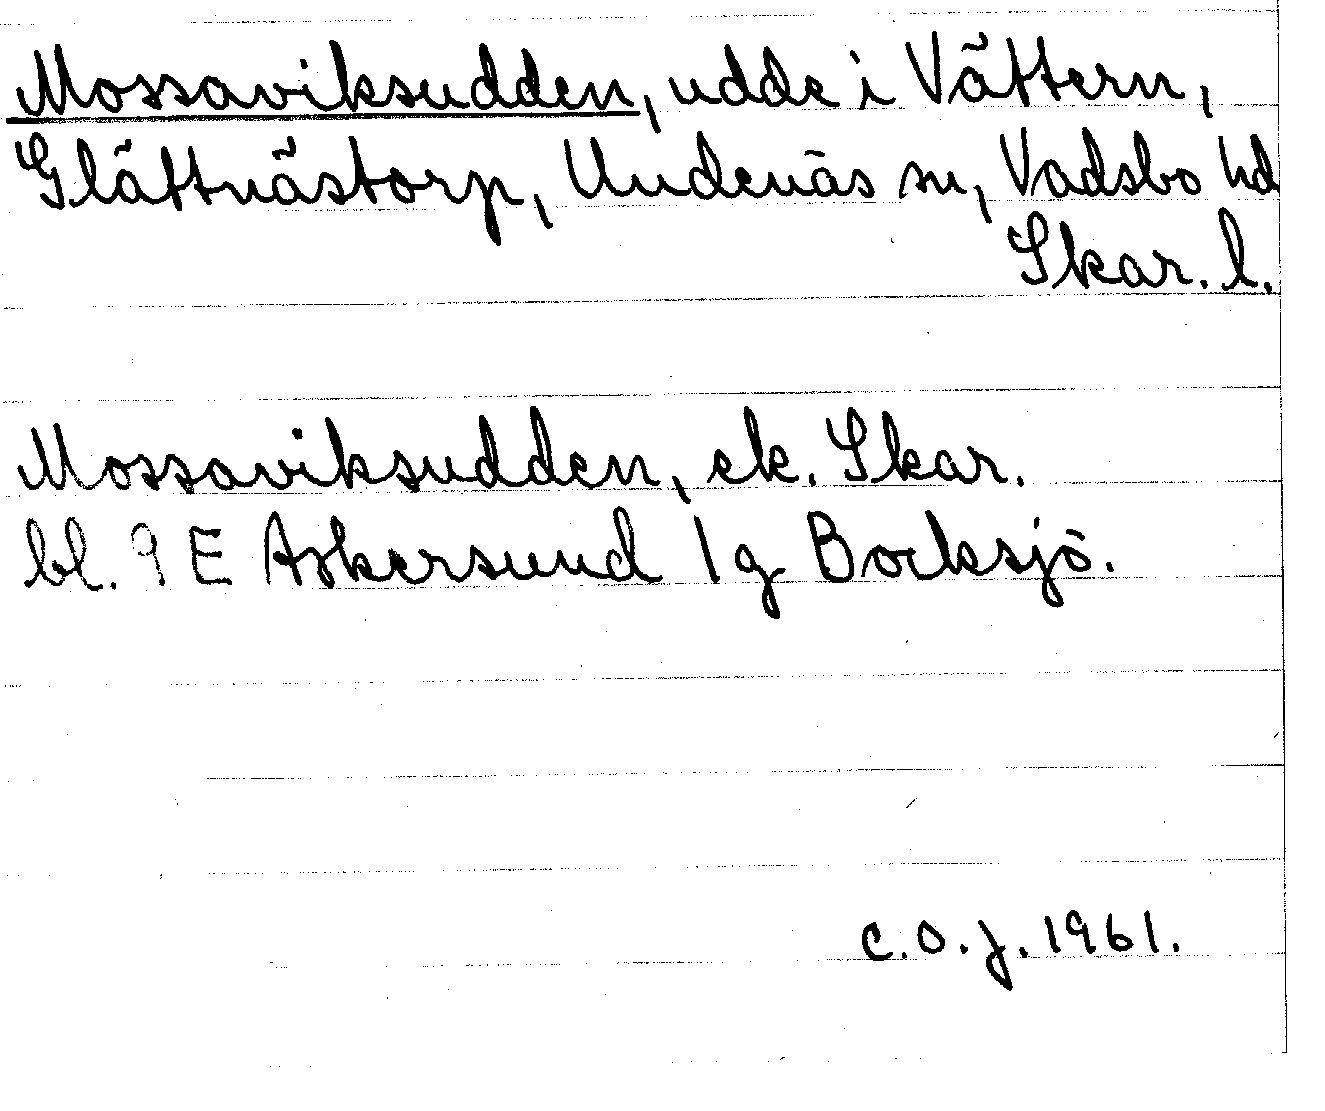 Mossaviksudden, udde i Vättern,
Glättnästorp, Undenäs sn, Vadsbo hd
Skar. l.
Mossaviksudden, ek. Skar.
bl. 9 E Askersund 1g Bocksjö.
C.O.J. 1961.